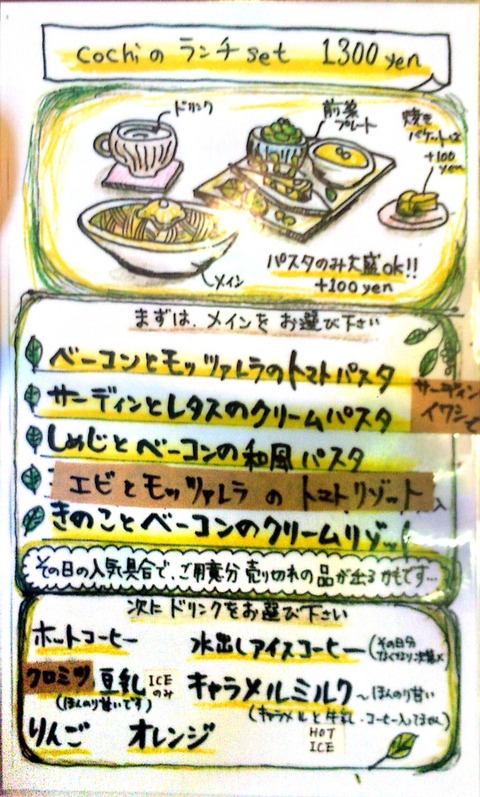 cochiの ランチset 1300 yen
ドリンク
前菜
プレート
焼き
バケットは
+100
yen
メイン
パスタのみ大盛ok!!
+100yen
まずは、メインを お選び下さい
ベーコンとモッツァレラのトマトパスタ
サーディンとレタスのクリームパスタ
サーディン
イワシ
しめじとベーコンの和風パスタ
エビとモッツァレラ の トマトリゾット
きのことベーコンのクリームリゾット
その日の人気具合で、ご用意分 売り切れの品が出るかもです…
次にドリンクをお選び下さい
ホットコーヒー
水出しアイスコーヒー(その日分
なくなり次第
クロミツ 豆乳 ICE
のみ
(ほんのり甘いです)
キャラメルミルク〜ほんのり甘い
(キャラメルと牛乳・コーヒー入ってません)
りんご オレンジ
HOT
ICE